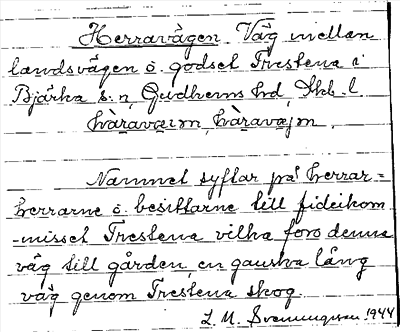 Herravägen. Väg mellan
landsvägen o. godset Trestena i
Bjärka s:n, Gudhems hd, Skb. l.
hàravæım, hàravæjm.
Namnet syftar på herrar=
herrarne o. besittarne till fideikom
-misset Trestena vilka foro denna
väg till gården, en ganska lång
väg genom Trestena skog.
L. M. Svenungsson 1944